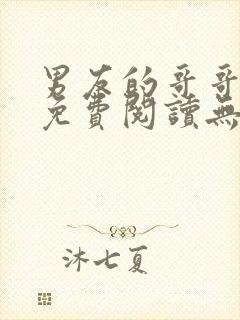 男友的哥哥
免費閱讀無
沐七夏